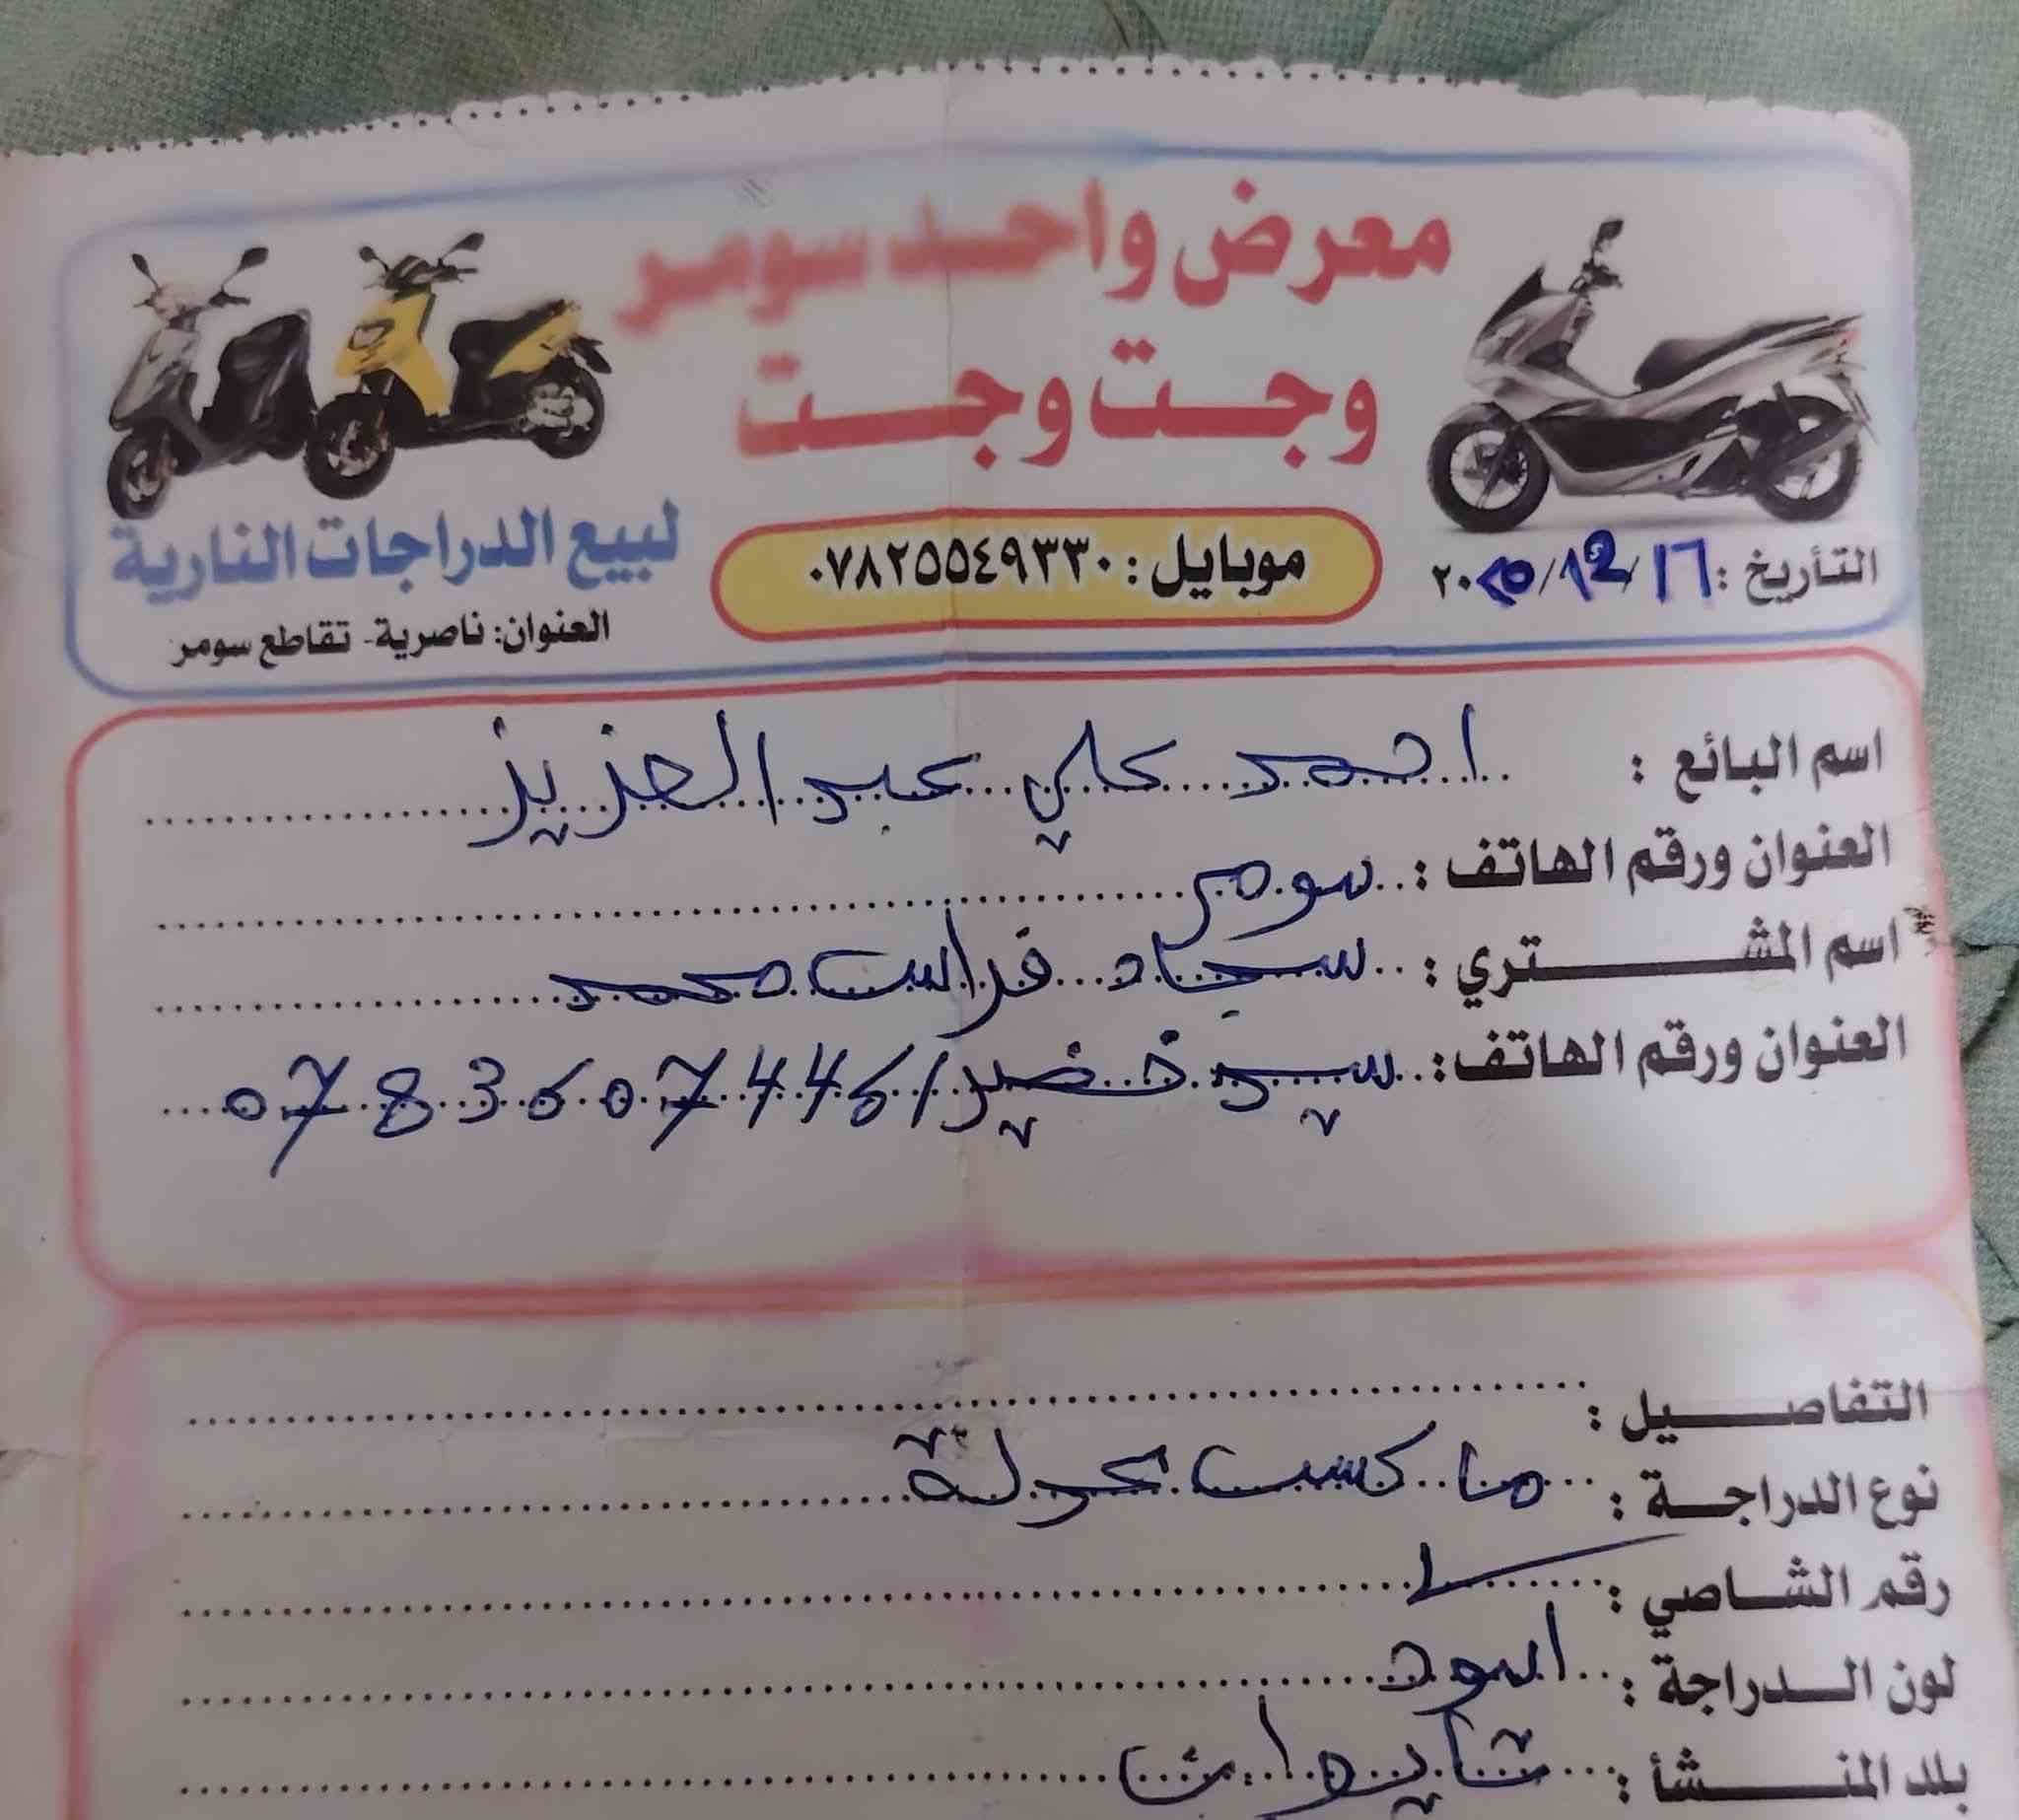 معرض واحد سومر
وجت وجت
لبيع الدراجات النارية
موبايل : ٠٧٨٢٥٥٤٩٣٣٠
التأريخ : ١٦ / ١2 / ٢٠٢٥
العنوان: ناصرية - تقاطع سومر
اسم البائع : احمد علي عبد العزيز
العنوان ورقم الهاتف : سومر
اسم المشتري : سجاد فراس محمد
العنوان ورقم الهاتف : سيد خضير / 0783607446
التفاصيل :
نوع الدراجة : ماكسـ عدلة
رقم الشاصي :
لون الدراجة : اسود
بلد المنشأ : تايوان